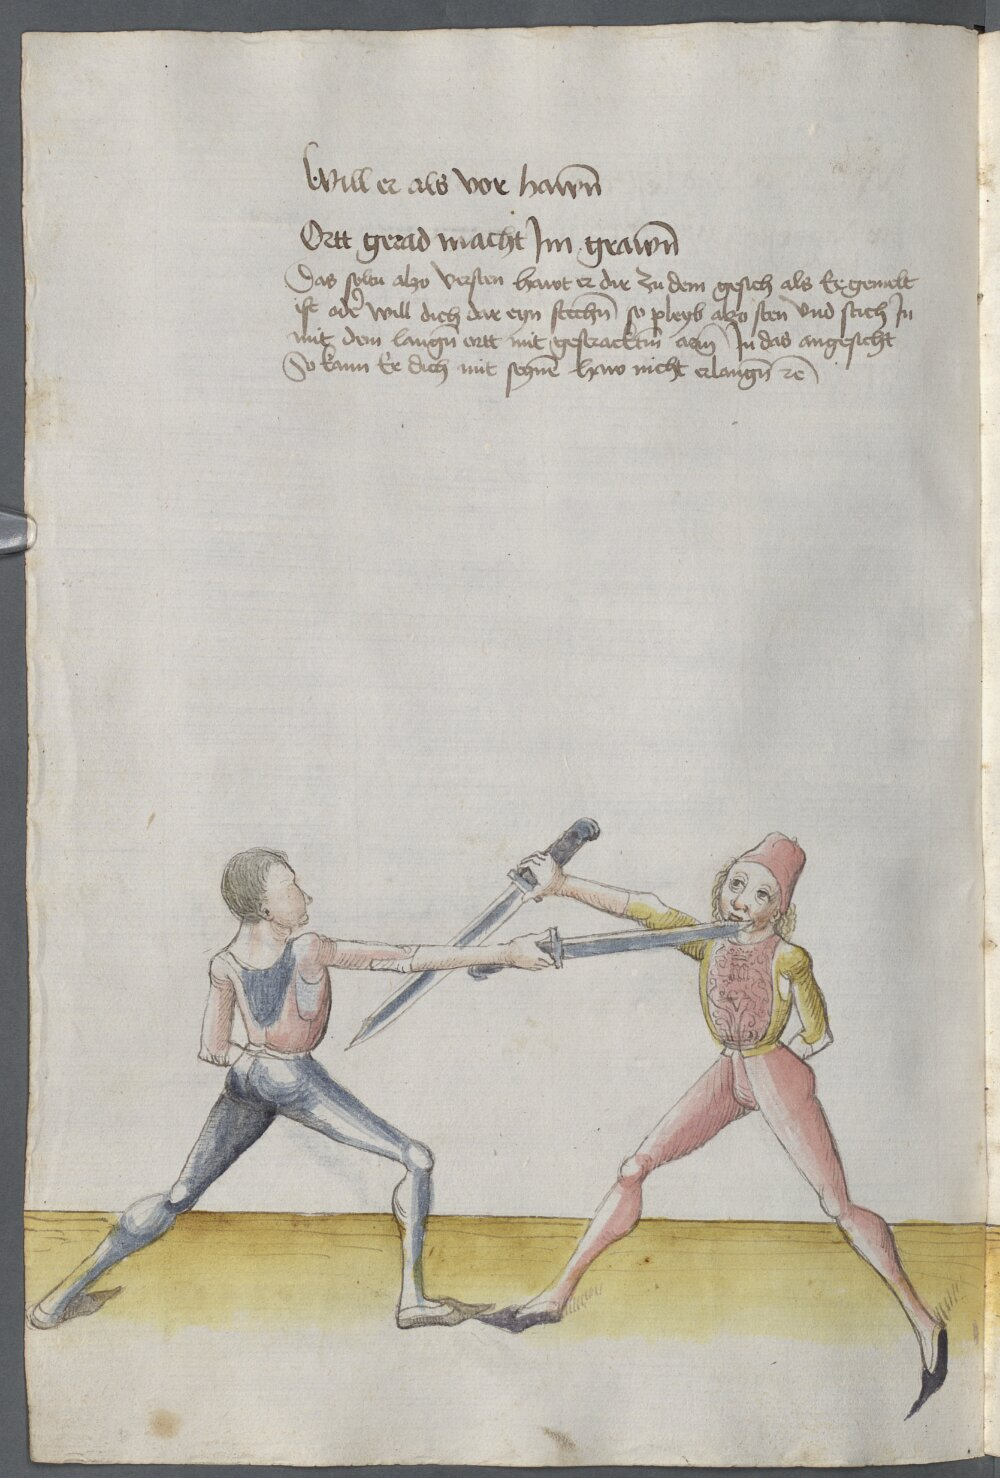 Will er als vor hawn̄
Ortt gerad macht Im grawn̄
Das soltu also versten hawt er dir zu dem gesich als Er gemelt
ist oder will dich dar eyn stechn̄ so pleyb also sten vnd stich In
mit dem langn̄ ortt mit gestracktm̄ arm In das angesicht
So kann Er dich mit seynē haw nicht erlangn̄ rc̄